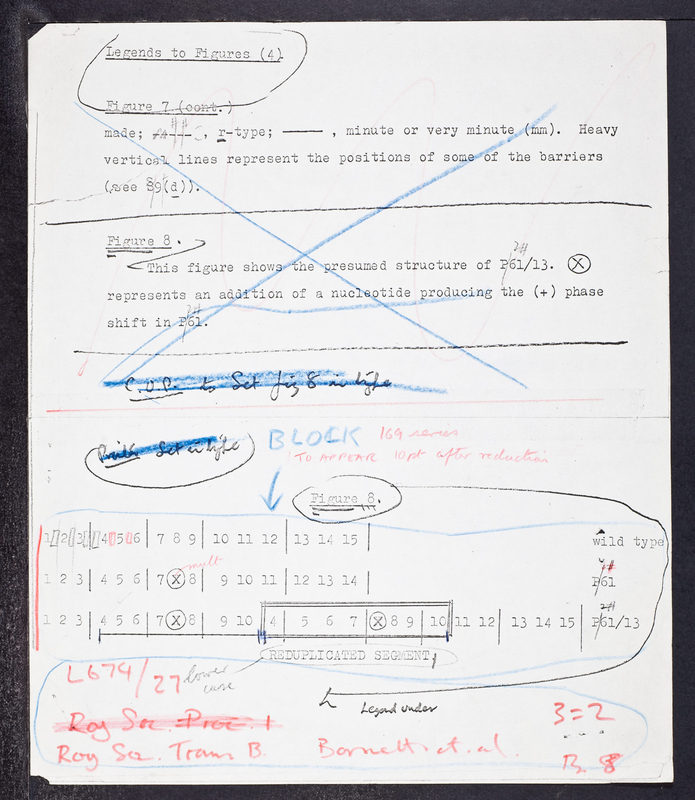 Legends to Figures (4)
Figure 7 (cont.)
made; , r-type; —— , minute or very minute (mm). Heavy
vertical lines represent the positions of some of the barriers
(see §9(d)).
Figure 8.
This figure shows the presumed structure of P61/13. Ⓧ
represents an addition of a nucleotide producing the (+) phase
shift in P61.
C.U.P. to Set fig 8 in type
Set in type
BLOCK 169 series
TO APPEAR 10pt after reduction
Figure 8.
1 2 3 | 4 5 6 | 7 8 9 | 10 11 12 | 13 14 15 | wild type
mult
1 2 3 | 4 5 6 | 7 Ⓧ 8 | 9 10 11 | 12 13 14 | P61
1 2 3 | 4 5 6 | 7 Ⓧ 8 | 9 10 | 4 | 5 6 7 | Ⓧ 8 9 | 10 | 11 12 | 13 14 15 | P61/13
REDUPLICATED SEGMENT
lower case
L674/27
Legend under
Roy Soc. Proc. 1
3=2
Roy Soc. Trans B. Barnett et al.
8